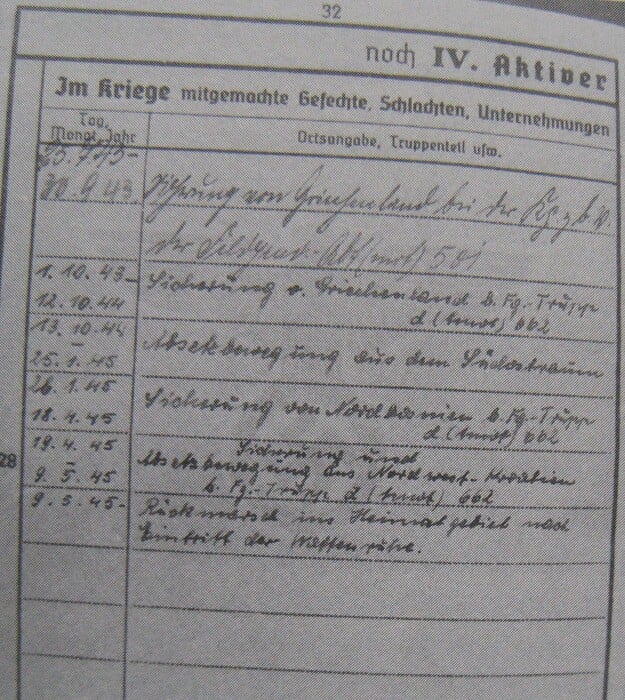 32
noch IV. Aktiver
Im Kriege mitgemachte Gefechte, Schlachten, Unternehmungen
Tag, Monat, Jahr
Ortsangabe, Truppenteil usw.
25.7.43-
30.9.43. Sicherung von Griechenland bei der
der Feldgend.- Abt (mot) 501
1. 10. 43- Sicherung v. Griechenland b. Fg-Trupp
12. 10. 44 d (tmot) 662
13. 10. 44
- Absetzbewegung aus dem Südostraum
25. 1. 45
26. 1. 45 Sicherung von Nordbosnien b. Fg-Trupp
18. 4. 45 d (tmot) 662
19. 4. 45 Sicherung und
- Absetzbewegung aus Nordwest-Kroatien
9. 5. 45 b. Fg.-Trupp d (tmot) 662
9. 5. 45- Rückmarsch ins Heimatgebiet nach
Eintritt der Waffenruhe.
28